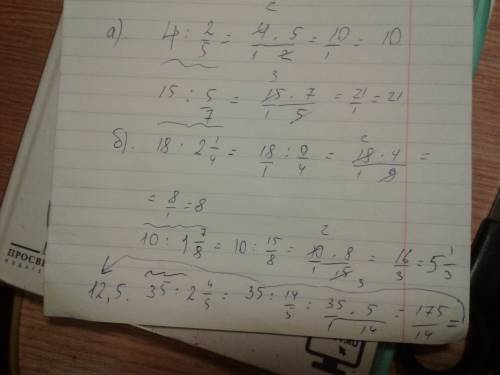 а). 4 : 2/5 = 4 · 5 / 1 · 2 = 10/1 = 10
15 : 5/7 = 15 · 7 / 1 · 5 = 21/1 = 21
б). 18 : 2 1/4 = 18/1 : 9/4 = 18 · 4 / 1 · 9 =
= 8/1 = 8
10 : 1 7/8 = 10 : 15/8 = 10 · 8 / 1 · 15 = 16/3 = 5 1/3
12,5. 35 : 2 4/5 = 35 : 14/5 = 35 · 5 / 1 · 14 = 175/14 =
ПРОСВ